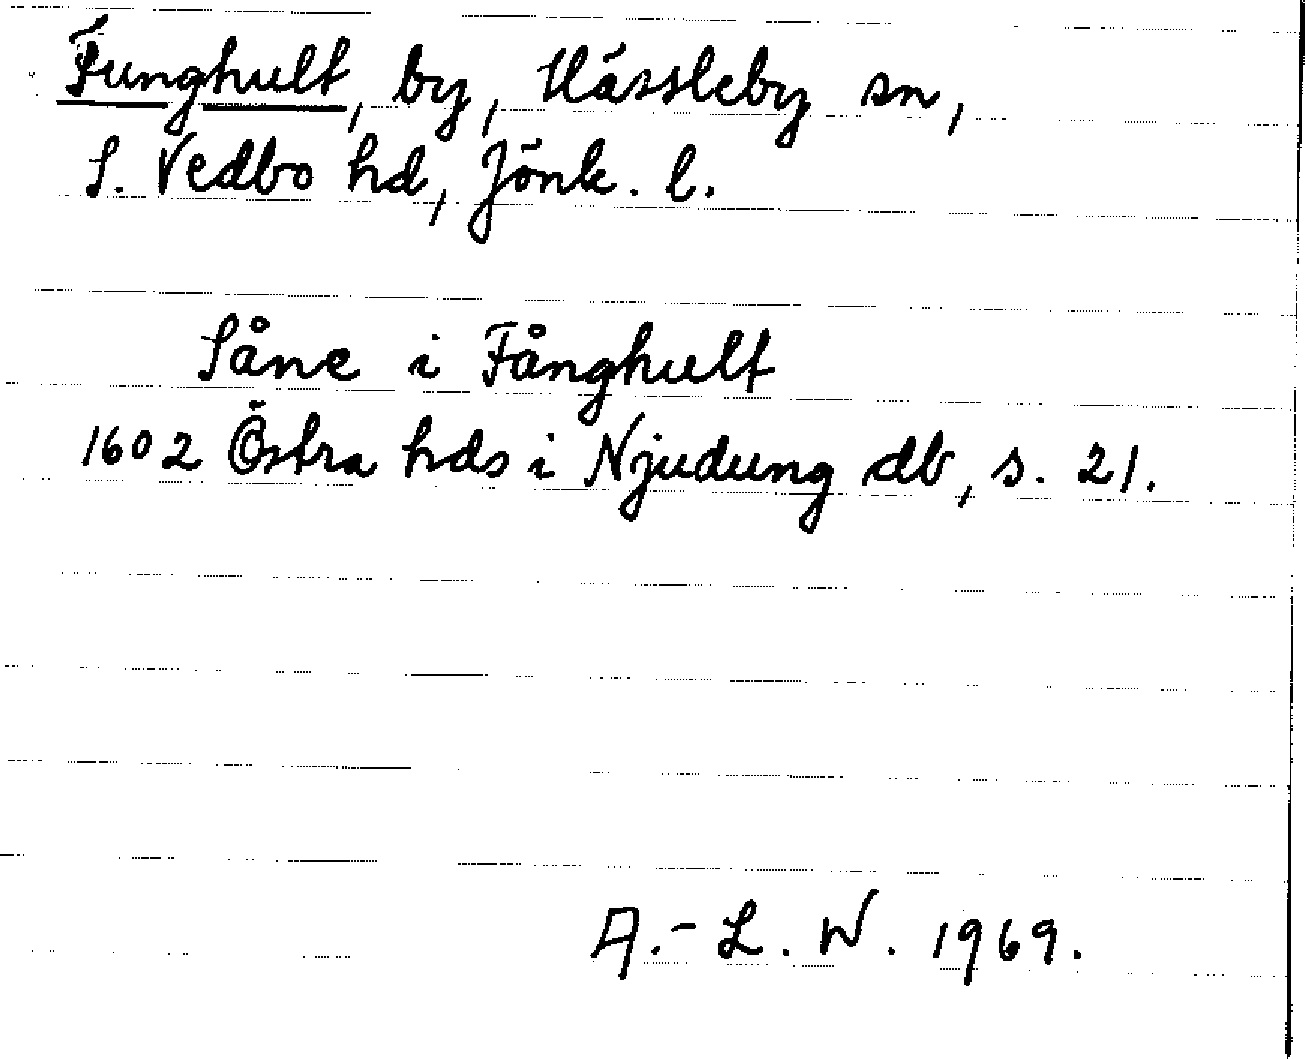 Funghult, by, Hässleby sn,
S. Vedbo hd, Jönk. l.
Såne i Fånghult
1602 Östra hds i Njudung db, s. 21.
A.-L. W. 1969.